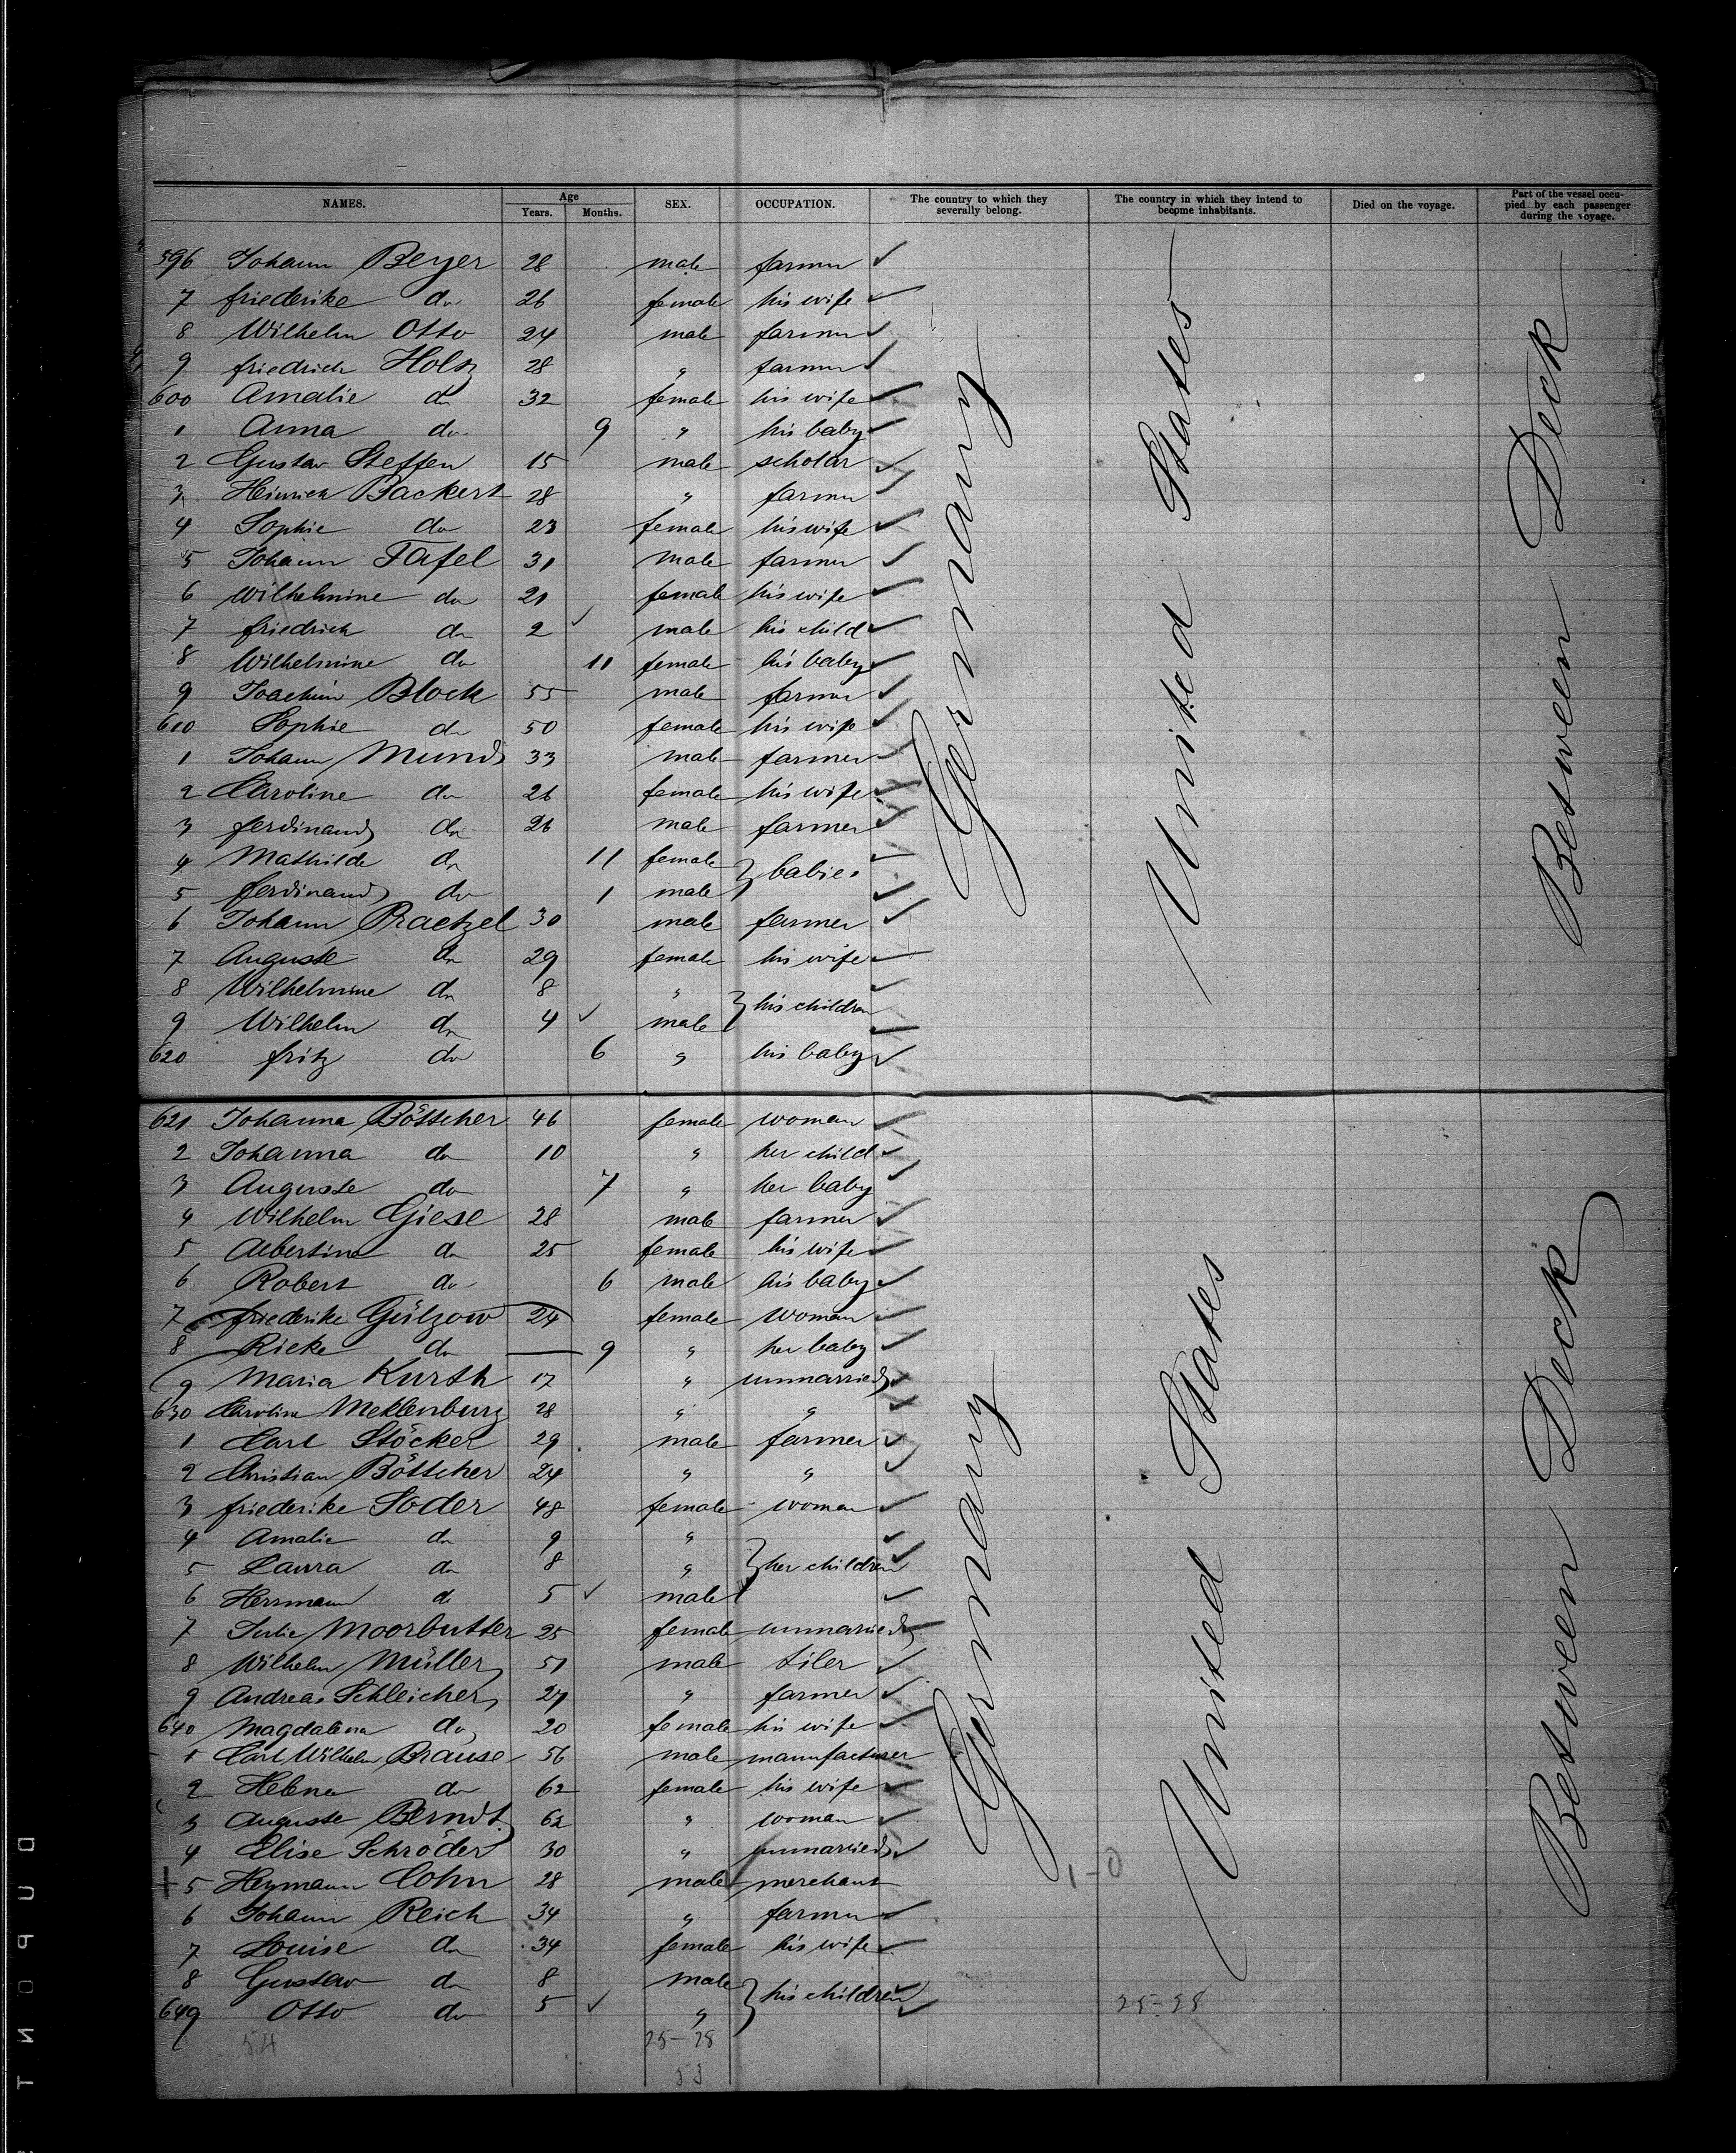 NAMES. Age Years. Months. SEX. OCCUPATION. The country to which they severally belong. The country in which they intend to become inhabitants. Died on the voyage. Part of the vessel occupied by each passenger during the voyage.
596 Johann Beyer 28 male farmer
7 friederike do 26 female his wife
8 Wilhelm Otto 24 male farmer
9 friedrich Holz 28 " farmer
600 Amalie do 32 female his wife
1 Anna do 9 " his baby
2 Gustav Steffen 15 male scholar
3 Heinrich Backert 28 " farmer
4 Sophie do 23 female his wife
5 Johann Tafel 31 male farmer
6 Wilhelmine do 21 female his wife
7 friedrich do 2 male his child
8 Wilhelmine do 11 female his baby
9 Joachim Block 55 male farmer
610 Sophie do 50 female his wife
1 Johann Mund 33 male farmer
2 Caroline do 26 female his wife
3 ferdinand do 26 male farmer
4 Mathilde do 11 female } babies
5 ferdinand do 1 male
6 Johann Praetzel 30 male farmer
7 Auguste do 29 female his wife
8 Wilhelmine do 8 " } his children
9 Wilhelm do 4 male
620 fritz do 6 " his baby
Germany United States Between Deck
621 Johanna Böttcher 46 female woman
2 Johanna do 10 " her child
3 Auguste do 7 " her baby
4 Wilhelm Giese 28 male farmer
5 Albertine do 25 female his wife
6 Robert do 6 male his baby
7 friederike Gülzow 24 female woman
8 Rieke do — 9 " her baby
9 Maria Kurth 17 " unmarried
630 Caroline Meklenburg 28 " "
1 Carl Stöcker 29 male farmer
2 Christian Böttcher 24 " "
3 friederike Soder 48 female woman
4 Amalie do 9 "
5 Laura do 8 " } her children
6 Herrmann do 5 male
7 Julie Moorbutter 25 female unmarried
8 Wilhelm Müller 51 male tiler
9 Andreas Schleicher 27 " farmer
640 Magdalena do 20 female his wife
1 Carl Wilhelm Brause 56 male manufacturer
2 Helene do 62 female his wife
3 Auguste Berndt 62 " woman
4 Elise Schröder 30 " unmarried
5 Heymann Cohn 28 male merchant 1-0
6 Johann Reich 34 " farmer
7 Louise do 34 female his wife
8 Gustav do 8 male } his children
649 Otto do 5 "
Germany United States Between Deck
25-28
54 25-28
53